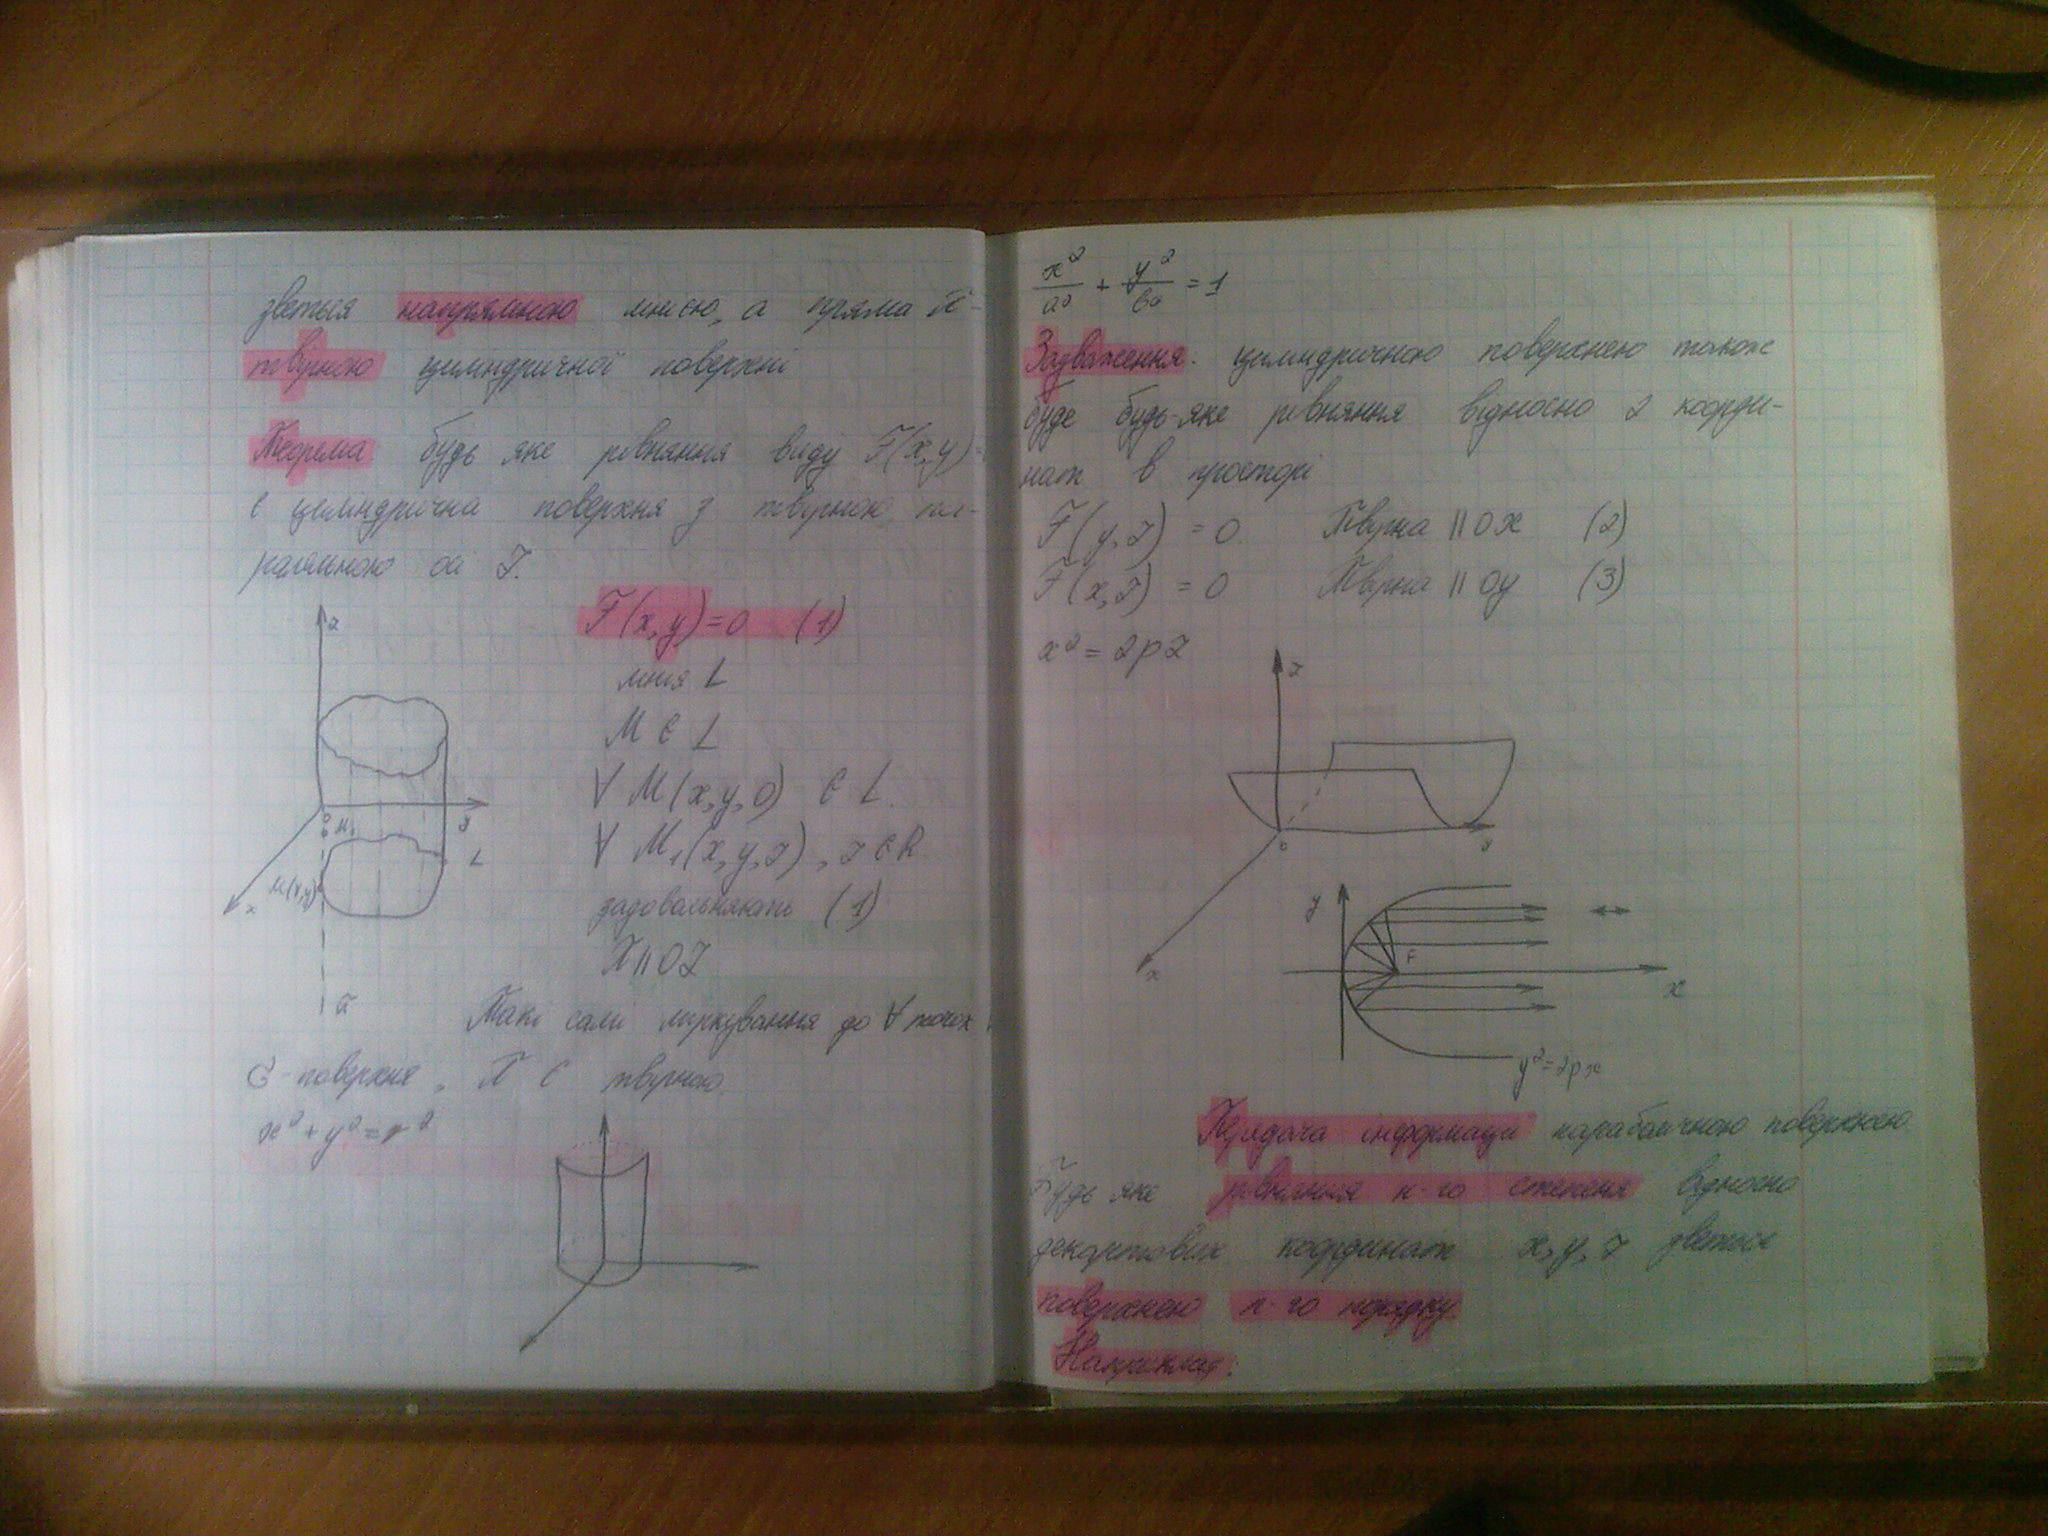 зветься напрямною лінією, а пряма π -
твірною циліндричної поверхні
Теорема будь яке рівняння виду F(x,y)=
є циліндрична поверхня з твірною па-
ралельною осі Z.
F(x,y)=0 (1)
лінія L
M ∈ L
∀ M(x,y,0) ∈ L.
∀ M₁(x,y,z), z∈R
задовольняють (1)
π || OZ
Такі самі міркування до ∀ точок
G-поверхня, π є твірною.
x²+y²=r²
z
0
M₁
y
L
M(x,y)
x
π
x²/a² + y²/b² = 1
Зауваження. циліндричною поверхнею також
буде будь-яке рівняння відносно 2 коорди-
нат в просторі
F(y,z) = 0. Твірна || OX (2)
F(x,z) = 0 Твірна || OY (3)
x² = 2pz
z
0
y
x
y
F
x
y²=2px
Передача інформації параболічною поверхнею
Будь яке рівняння n-го степеня відносно
декартових координат x, y, z зветься
поверхнею n-го порядку.
Наприклад: